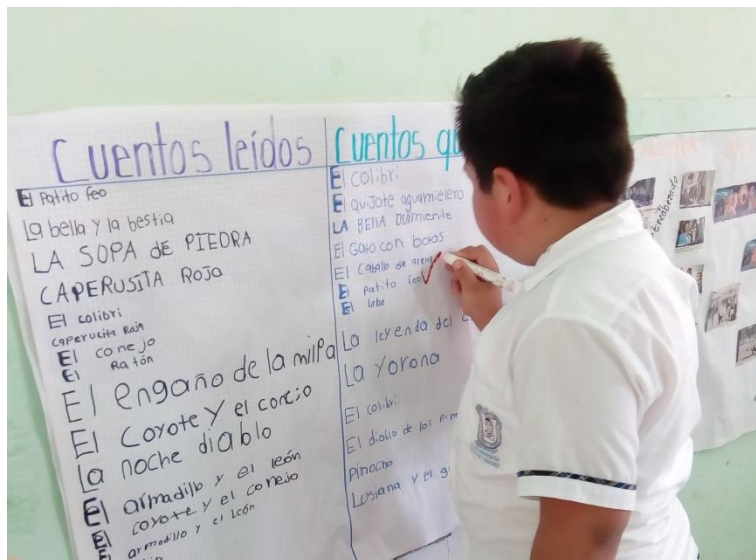 Cuentos leídos
El Patito feo
La bella y la bestia
LA SOPA dE PIEDRA
CAPERUSITA ROJa
El colibri
caperucita Roja
El conejo
El Ratón
El engaño de la milpa
El Coyote y el conejo
la noche diablo
El armadillo y el león
El coyote y el conejo
El armadillo y el león
Cuentos
El colibri
El quijote aguamielero
LA BEllA Durmiente
El Gato con botas
El Caballo de
El patito feo
El lobo
La leyenda del
La Yorona
El colibri
El diablo de los
Pinocho
Lusiana y el